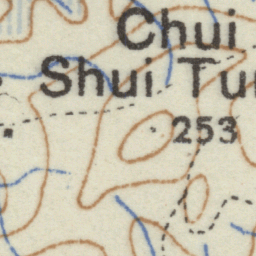 Chui
Shui Tu
253